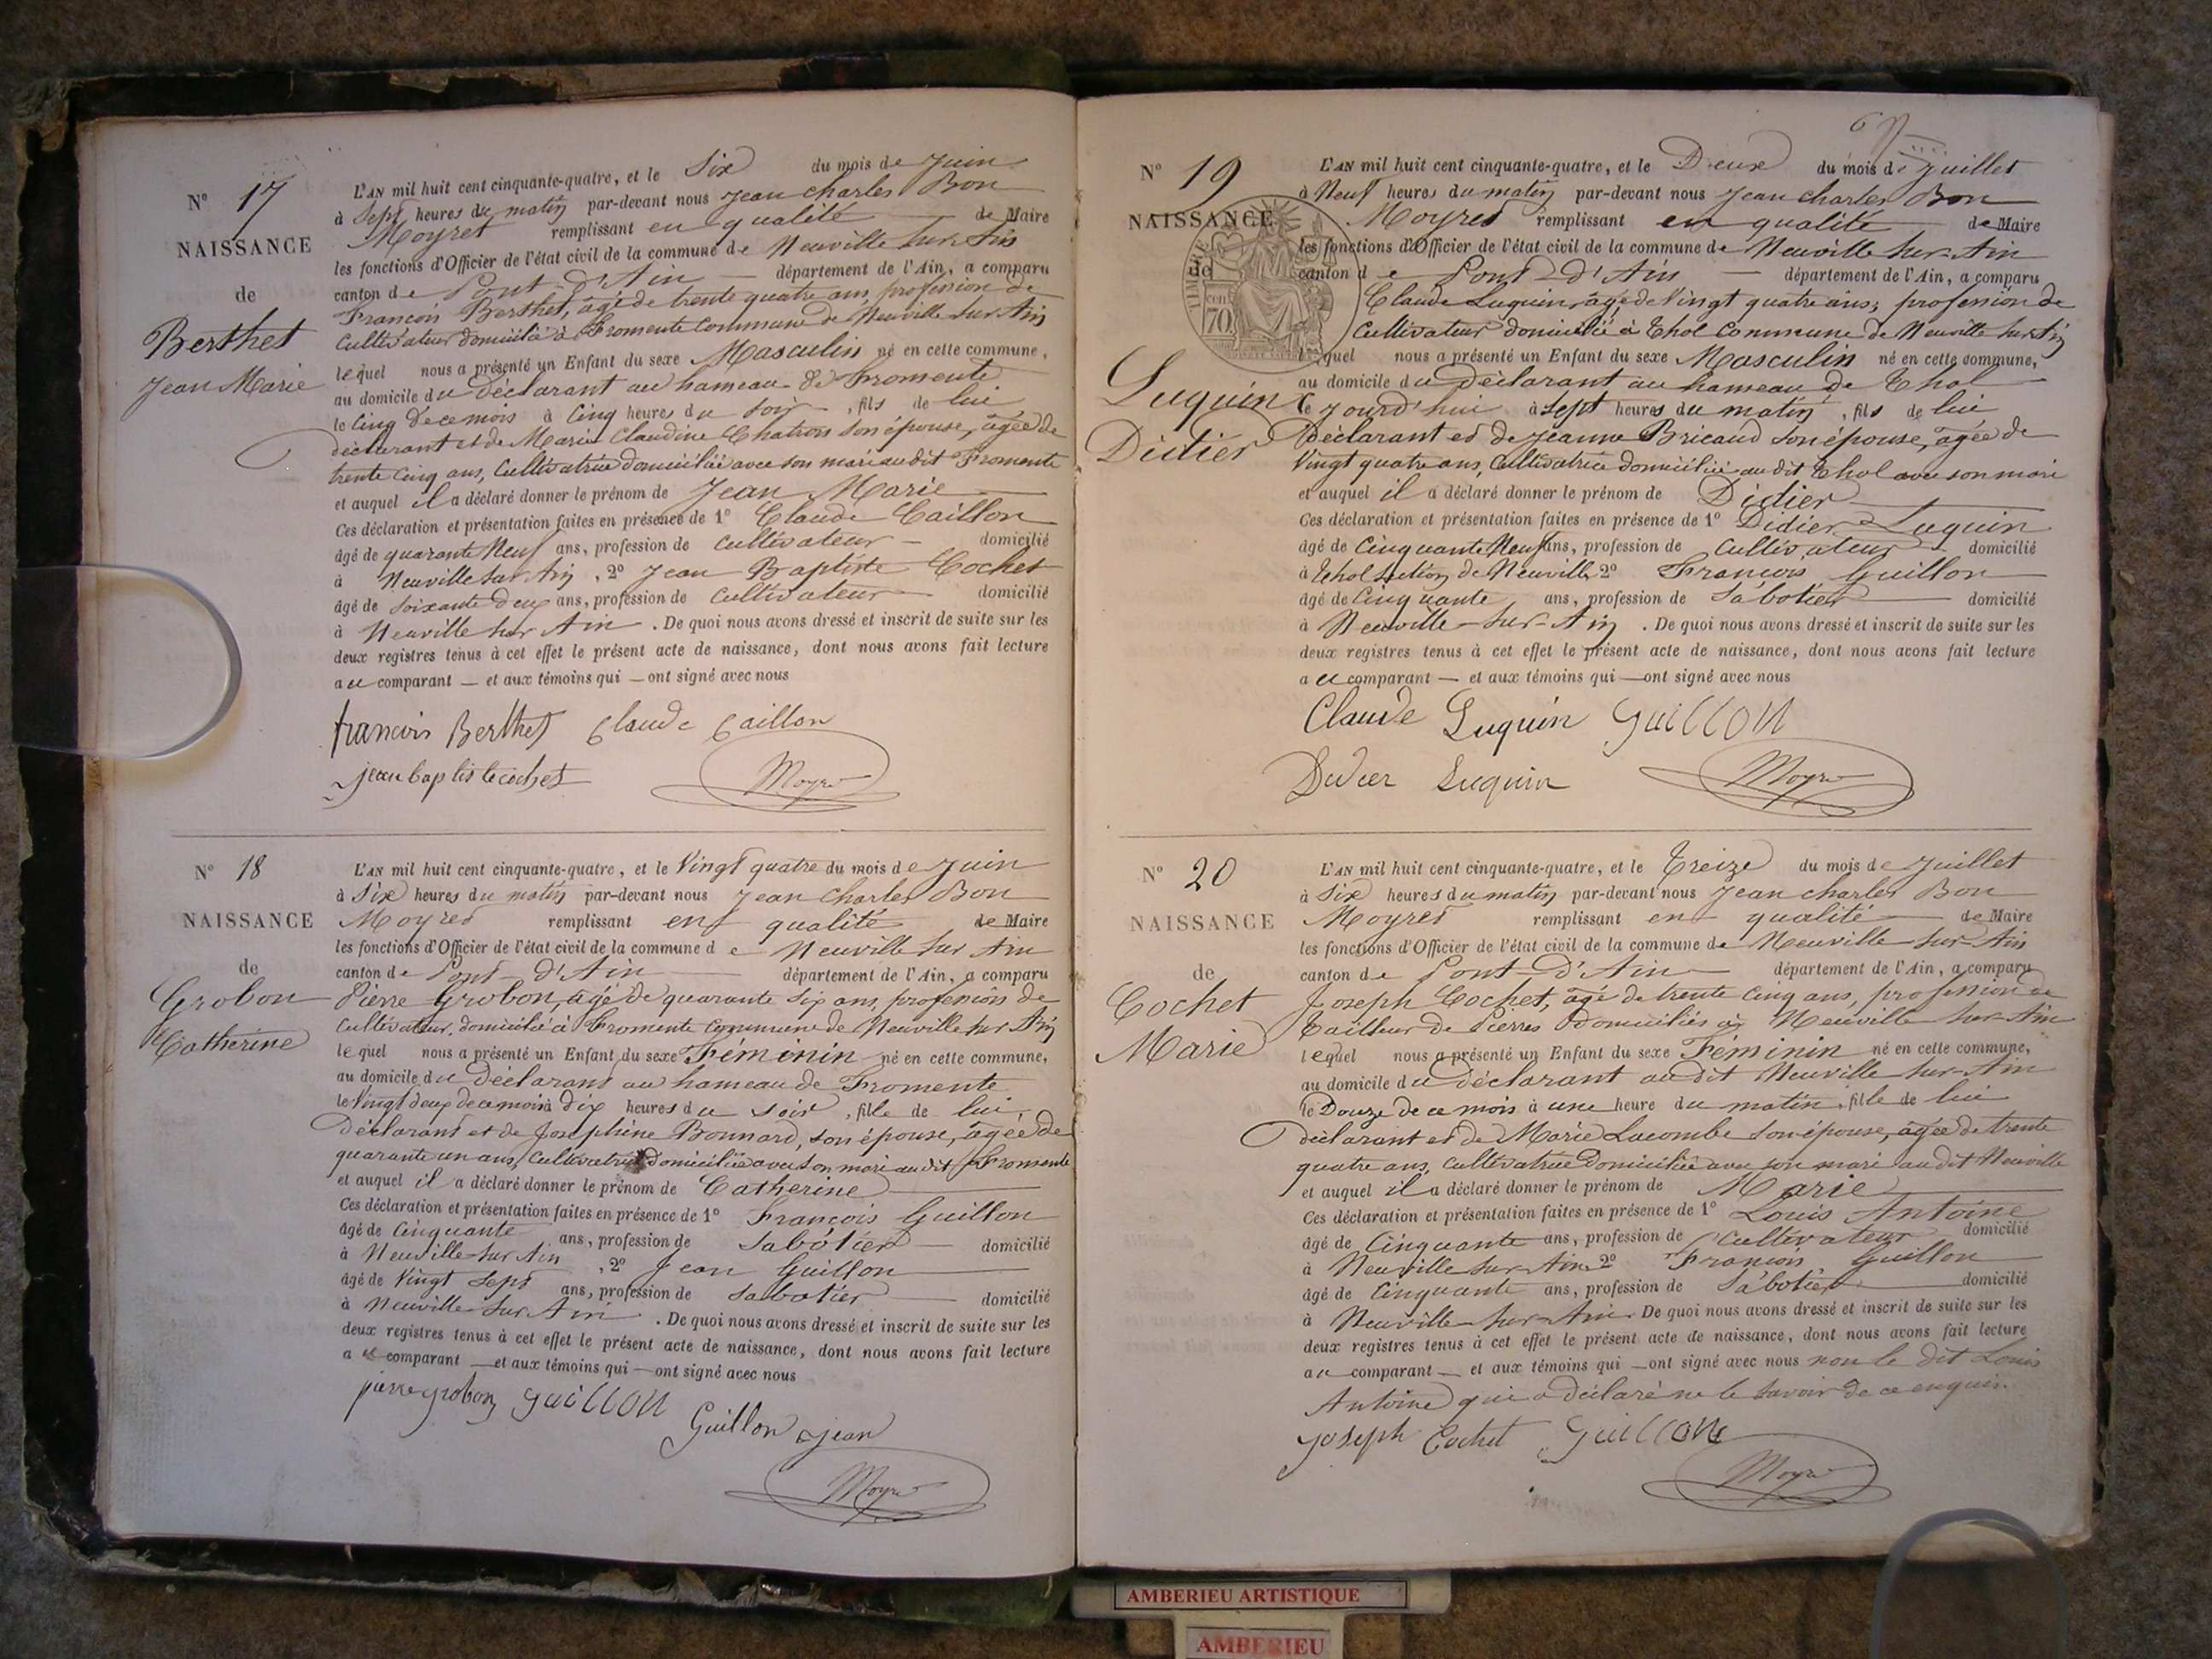 N° 17
NAISSANCE
de
Berthet
Jean Marie
L'AN mil huit cent cinquante-quatre, et le Six du mois de Juin
à Sept heures du matin par-devant nous Jean Charles Bon
Moyret remplissant en qualité de Maire
les fonctions d'Officier de l'état civil de la commune de Neuville sur Ain
canton de Pont-d'Ain département de l'Ain, a comparu
François Berthet, âgé de trente quatre ans, profession de
Cultivateur domicilié à Fromente Commune de Neuville sur Ain
lequel nous a présenté un Enfant du sexe Masculin né en cette commune,
au domicile du Déclarant au hameau de Fromente
le Cinq de ce mois à Cinq heures du soir, fils de lui
déclarant et de Marie Claudine Chatron son épouse, âgée de
trente cinq ans, Cultivatrice domiciliée avec son mari au dit Fromente
et auquel il a déclaré donner le prénom de Jean Marie
Ces déclaration et présentation faites en présence de 1° Claude Caillon
âgé de quarante Neuf ans, profession de Cultivateur domicilié
à Neuville sur Ain, 2° Jean Baptiste Cochet
âgé de soixante deux ans, profession de Cultivateur domicilié
à Neuville sur Ain. De quoi nous avons dressé et inscrit de suite sur les
deux registres tenus à cet effet le présent acte de naissance, dont nous avons fait lecture
au comparant — et aux témoins qui — ont signé avec nous
francois Berthet Claude Caillon
jean baptiste cochet Moyret
N° 18
NAISSANCE
de
Grobon
Catherine
L'AN mil huit cent cinquante-quatre, et le Vingt quatre du mois de Juin
à Six heures du matin par-devant nous Jean Charles Bon
Moyret remplissant en qualité de Maire
les fonctions d'Officier de l'état civil de la commune de Neuville sur Ain
canton de Pont-d'Ain département de l'Ain, a comparu
Pierre Grobon, âgé de quarante six ans, profession de
Cultivateur, domicilié à Fromente Commune de Neuville sur Ain
lequel nous a présenté un Enfant du sexe Féminin né en cette commune,
au domicile du Déclarant au hameau de Fromente
le Vingt deux de ce mois à dix heures du soir, fille de lui
Déclarant et de Joséphine Bonnard, son épouse, âgée de
quarante un ans, Cultivatrice domiciliée avec son mari au dit Fromente
et auquel il a déclaré donner le prénom de Catherine
Ces déclaration et présentation faites en présence de 1° François Guillon
âgé de Cinquante ans, profession de Sabotier domicilié
à Neuville sur Ain, 2° Jean Guillon
âgé de Vingt Sept ans, profession de Sabotier domicilié
à Neuville sur Ain. De quoi nous avons dressé et inscrit de suite sur les
deux registres tenus à cet effet le présent acte de naissance, dont nous avons fait lecture
au comparant — et aux témoins qui — ont signé avec nous
pierre grobon guillon
Guillon jean
Moyret
N° 19
NAISSANCE
de
TIMBRE
cent
70
Luquin
Didier
L'AN mil huit cent cinquante-quatre, et le Deux du mois de Juillet
à Neuf heures du matin par-devant nous Jean Charles Bon
Moyret remplissant en qualité de Maire
les fonctions d'Officier de l'état civil de la commune de Neuville sur Ain
canton de Pont-d'Ain département de l'Ain, a comparu
Claude Luquin, âgé de Vingt quatre ans, profession de
Cultivateur domicilié à Thol Commune de Neuville sur Ain
lequel nous a présenté un Enfant du sexe Masculin né en cette commune,
au domicile du Déclarant au hameau de Thol
le Jourd'hui à Sept heures du matin, fils de lui
Déclarant et de Jeanne Bricaud son épouse, âgée de
Vingt quatre ans, Cultivatrice domiciliée au dit Thol avec son mari
et auquel il a déclaré donner le prénom de Didier
Ces déclaration et présentation faites en présence de 1° Didier Luquin
âgé de Cinquante Neuf ans, profession de Cultivateur domicilié
à Thol section de Neuville, 2° François Guillon
âgé de Cinquante ans, profession de Sabotier domicilié
à Neuville-sur-Ain. De quoi nous avons dressé et inscrit de suite sur les
deux registres tenus à cet effet le présent acte de naissance, dont nous avons fait lecture
au comparant — et aux témoins qui — ont signé avec nous
Claude Luquin guillon
Didier Luquin Moyret
N° 20
NAISSANCE
de
Cochet
Marie
L'AN mil huit cent cinquante-quatre, et le Treize du mois de Juillet
à Six heures du matin par-devant nous Jean Charles Bon
Moyret remplissant en qualité de Maire
les fonctions d'Officier de l'état civil de la commune de Neuville-sur-Ain
canton de Pont-d'Ain département de l'Ain, a comparu
Joseph Cochet, âgé de trente Cinq ans, profession de
Tailleur de Pierres domicilié à Neuville sur-Ain
lequel nous a présenté un Enfant du sexe Féminin né en cette commune,
au domicile du déclarant au dit Neuville sur-Ain
le Douze de ce mois à une heure du matin, fille de lui
déclarant et de Marie Lacombe son épouse, âgée de trente
quatre ans, Cultivatrice domiciliée avec son mari au dit Neuville
et auquel il a déclaré donner le prénom de Marie
Ces déclaration et présentation faites en présence de 1° Louis Antoine
âgé de Cinquante ans, profession de Cultivateur domicilié
à Neuville sur Ain 2° François Guillon
âgé de Cinquante ans, profession de Sabotier domicilié
à Neuville-sur-Ain. De quoi nous avons dressé et inscrit de suite sur les
deux registres tenus à cet effet le présent acte de naissance, dont nous avons fait lecture
au comparant — et aux témoins qui — ont signé avec nous non le dit Louis
Antoine qui a déclaré ne le savoir de ce enquis.
Joseph Cochet guillon
Moyret
AMBERIEU ARTISTIQUE
AMBERIEU